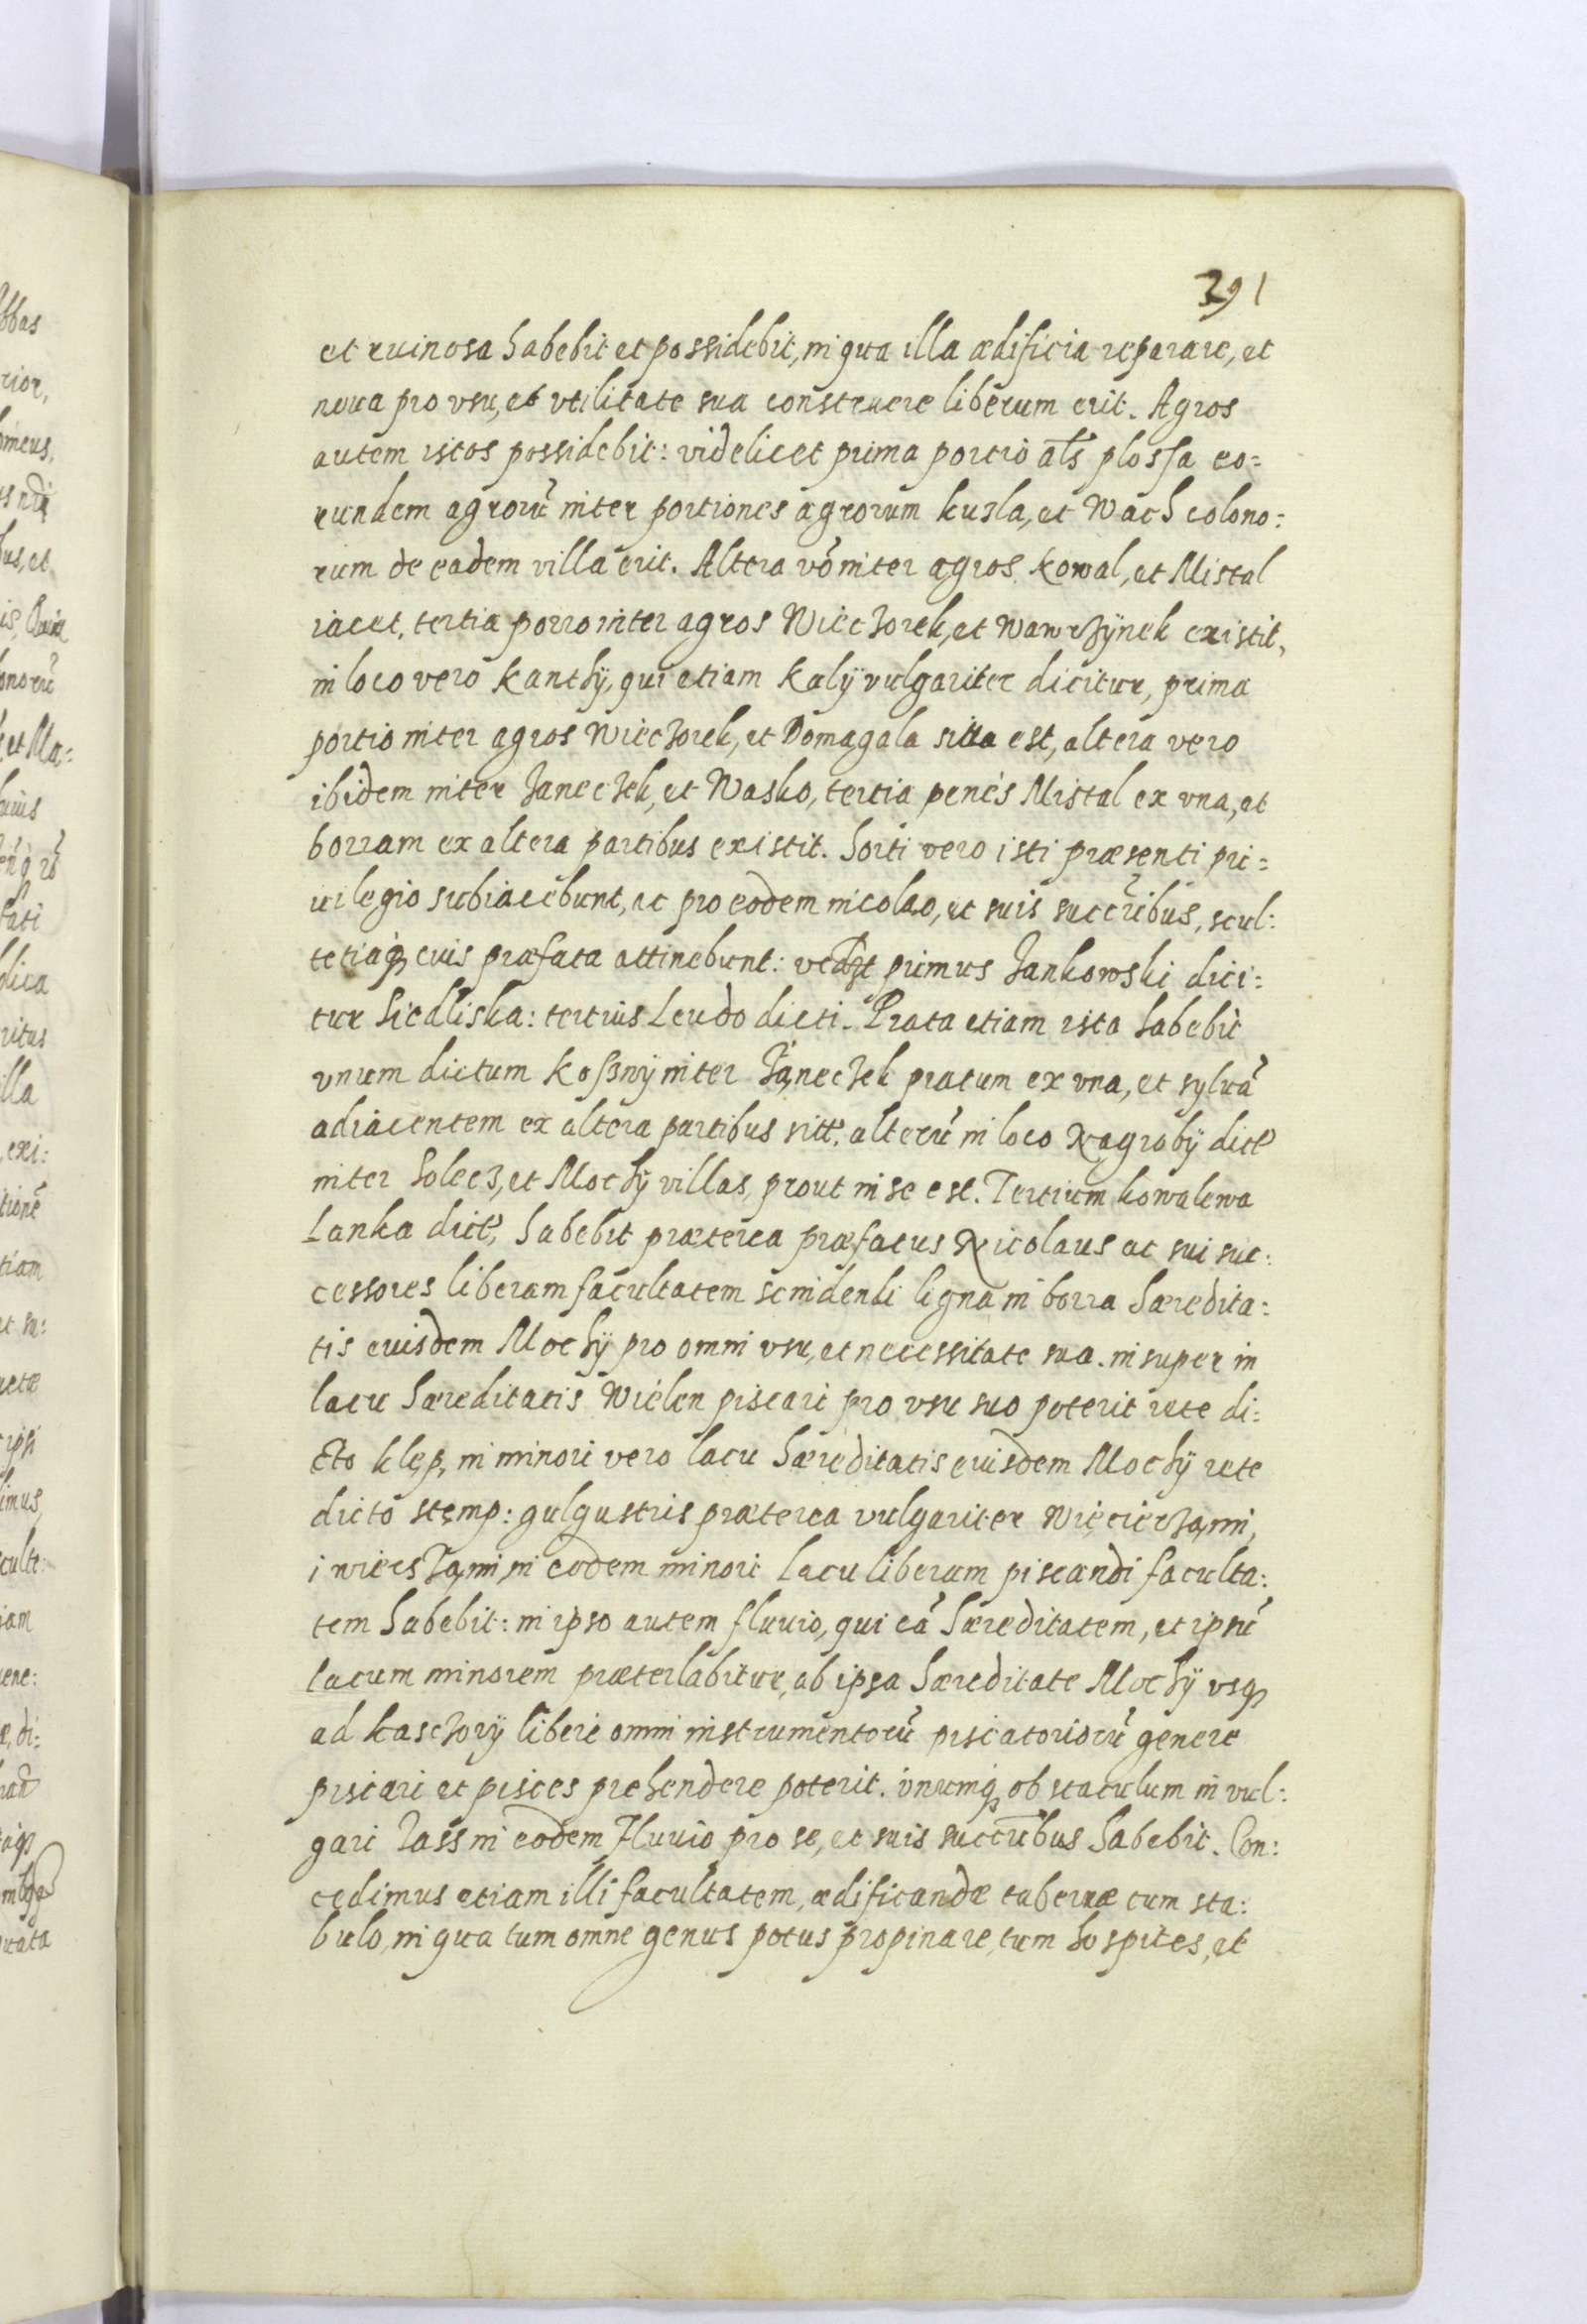 391
et ruinosa habebit et possidebit, in qua illa ædificia reparare, et
noua pro vsu, et vtilitate sua construere liberum erit. Agros
autem istos possidebit: videlicet prima portio als plossa eo=
rundem agrorū inter portiones agrorum kuzla, et Wach colono=
rum de eadem villa erit. Altera vō inter agros kowal, et Mistal
iacet, tertia porro inter agros Wieczorek, et Wawrzÿnek existit,
in loco vero kanthÿ, qui etiam kalÿ vulgariter dicitur, prima
portio inter agros Wieczorek, et Domagala sita est, altera vero
ibidem inter Janeczek, et Wasko, tertia penes Mistal ex vna, et
borram ex altera partibus existit. horti vero isti præsenti pri=
uilegio subiacebunt, ac pro eodem nicolao, et suis succribus, scul:
tetiaq3 euis præfata attinebunt: primus Jankowski dici:
tur Siedliska: tertius Leudo dicti. Prata etiam ista habebit
vnum dictum koßnÿ inter Janeczek pratum ex vna, et syluā
adiacentem ex altera partibus sitt, alterū in loco Nagrobÿ dict
inter Solecz, et Mochÿ villas, prout in se est. Tertium kowalewa
Lanka dict, habebit præterea præfatus Nicolaus ac sui suc:
cessores liberam facultatem scindendi ligna in borra hæredita:
tis euisdem Mochÿ pro omni vsu, et necessitate sua. in super in
lacu hæreditatis Wielen piscari pro vsu suo poterit rete di:
cto klęp, in minori vero lacu hæreditatis euisdem Mochÿ rete
dicto stęmp: gulgustris præterea vulgariter Więcierzami,
i wierszami, in eodem minori lacu liberum piscandi faculta:
tem habebit: in ipso autem fluuio, qui eā hæreditatem, et ipsū
lacum minorem præterlabitur, ab ipsa hæreditate Mochÿ vsq3
ad kaszczorÿ libere omni instrumentorū piscatoriorū genere
piscari et pisces prehendere poterit. vnumq3 obstaculum in vul:
gari Jass in eodem Fluuio pro se, et suis succribus habebit. Con:
cedimus etiam illi facultatem, ædificandæ tabernæ cum sta:
bulo, in qua tum omne genus potus propinare, tum hospites, et